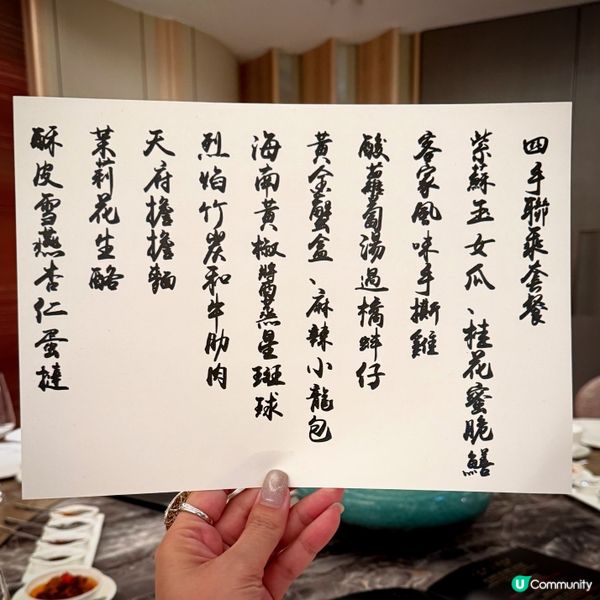 四手聯乘套餐
紫蘇玉女瓜、桂花蜜脆鱔
客家風味手撕雞
酸蘿蔔湯過橋蚌仔
黃金蟹盒、麻辣小龍包
海南黃椒醬蒸星斑球
烈焰竹炭和牛肋肉
天府擔擔麵
茉莉花生酪
酥皮雪燕杏仁蛋撻
U Community